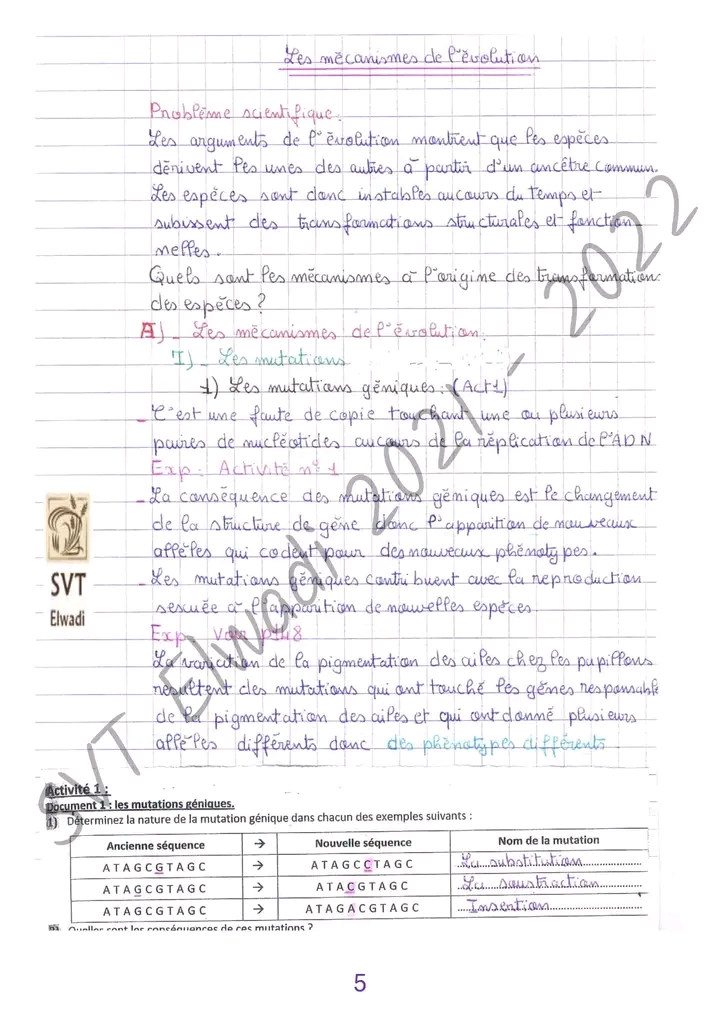 Les mécanismes de l'évolution
Problème scientifique.
Les arguments de l'évolution montrent que les espèces
dérivent les unes des autres à partir d'un ancêtre commun.
Les espèces sont donc instables au cours du temps et
subissent des transformations structurales et fonction
nelles.
Quels sont les mécanismes à l'origine des transformation
des espèces ?
A)_ Les mécanismes de l'évolution.
I)_ Les mutations
1) Les mutations géniques : (Act1)
_ C'est une faute de copie touchant une ou plusieurs
paires de nucléotides au cours de la réplication de l'ADN
Exp : Activité n° 1
_ La conséquence des mutations géniques est le changement
de la structure de gène donc l'apparition de nouveaux
allèles qui codent pour des nouveaux phénotypes.
_ Les mutations géniques contribuent avec la reproduction
sexuée à l'apparition de nouvelles espèces.
Exp Voir p148
La variation de la pigmentation des ailes chez les papillons
résultent des mutations qui ont touché les gènes responsable
de la pigmentation des ailes et qui ont donné plusieurs
allèles différents donc des phénotypes différents
SVT
Elwadi
SVT Elwadi 2021 - 2022
Activité 1 :
Document 1 : les mutations géniques.
1) Déterminez la nature de la mutation génique dans chacun des exemples suivants :
Ancienne séquence → Nouvelle séquence Nom de la mutation
A T A G C G T A G C → A T A G C C T A G C La substitution
A T A G C G T A G C → A T A C G T A G C La soustraction
A T A G C G T A G C → A T A G A C G T A G C Insention
Quelles sont les conséquences de ces mutations ?
5